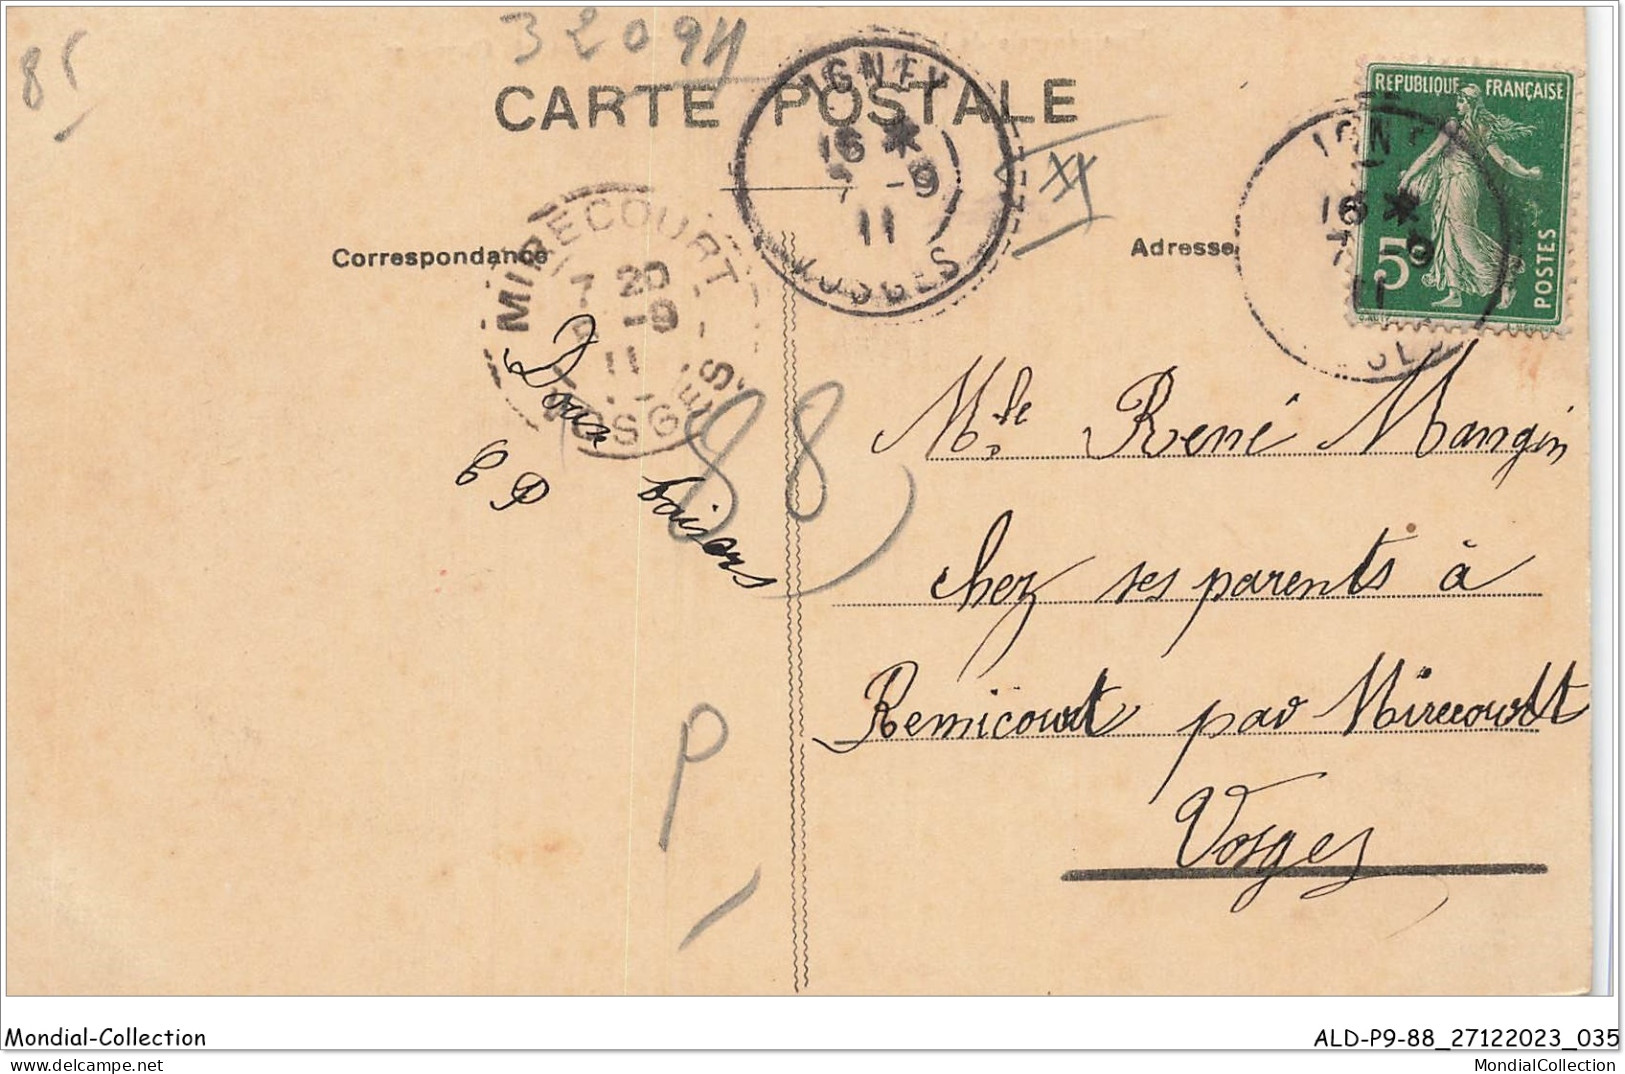 85
32094
CARTE POSTALE
IGNEY
16 *
-9
11
VOSGES
REPUBLIQUE FRANÇAISE
5c
POSTES
IGN
16 *
9
11
Correspondance
Adresse
MIRECOURT
7 20
-9
11
VOSGES
Doux baisers
C P
88
P
Mle René Mangin
chez ses parents à
Remicourt par Mirecourt
Vosges
Mondial-Collection
ALD-P9-88_27122023_035
delcampe.net
MondialCollection